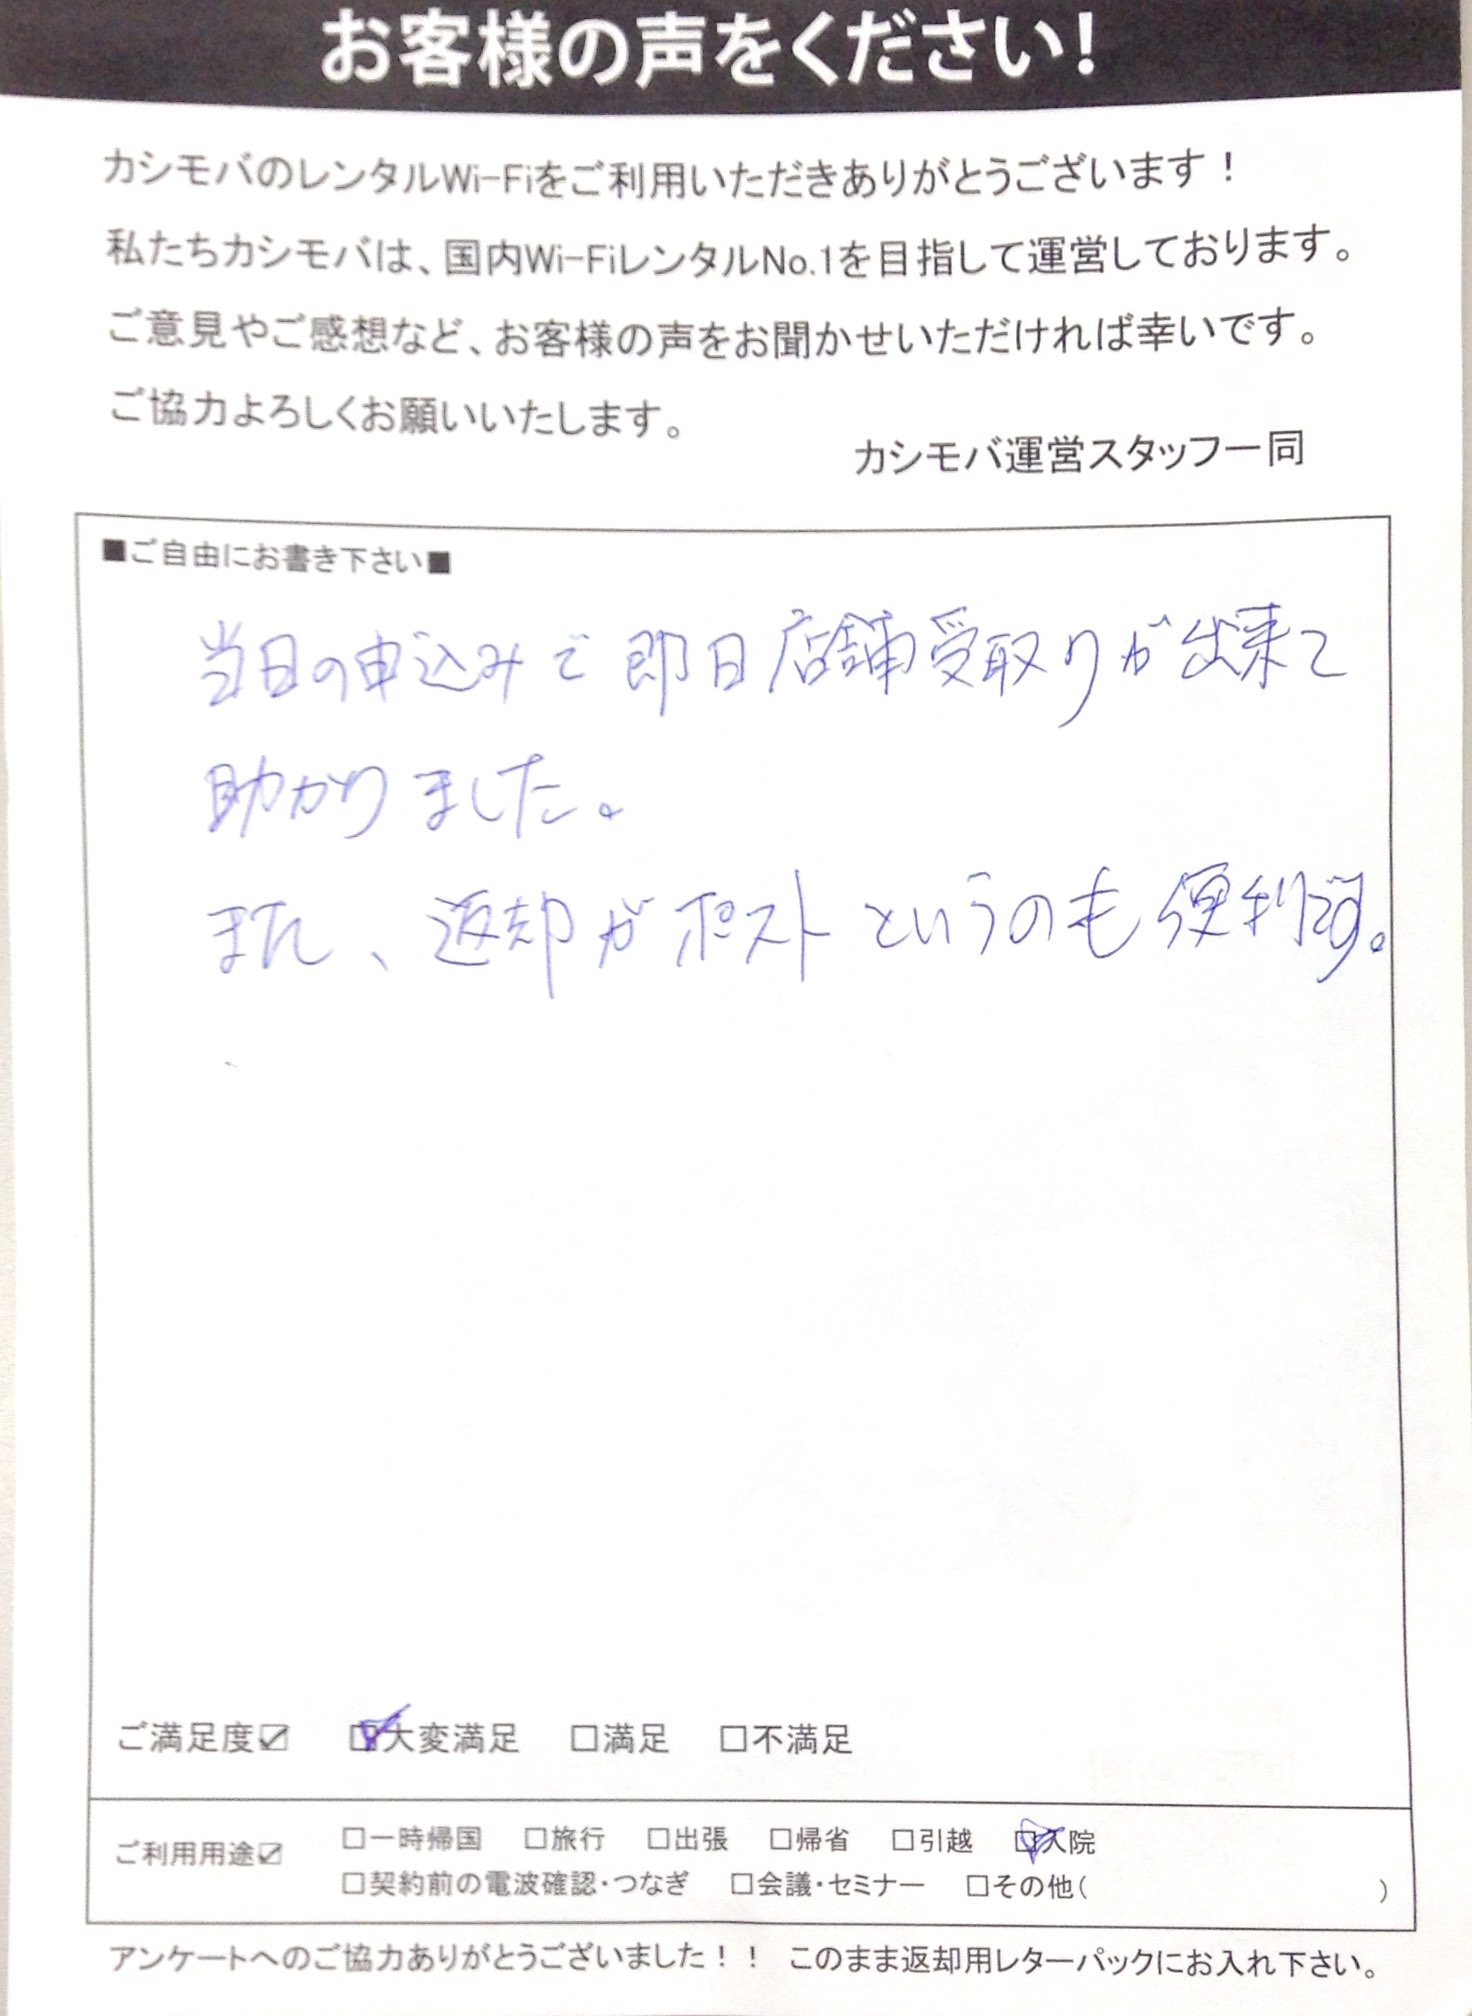 お客様の声をください!
カシモバのレンタルWi-Fiをご利用いただきありがとうございます！
私たちカシモバは、国内Wi-FiレンタルNo.1を目指して運営しております。
ご意見やご感想など、お客様の声をお聞かせいただければ幸いです。
ご協力よろしくお願いいたします。
カシモバ運営スタッフ一同
■ご自由にお書き下さい■
当日の申込みで即日店舗受取りが出来て
助かりました。
また、返却がポストというのも便利です。
ご満足度☑ ☑大変満足 □満足 □不満足
ご利用用途☑ □一時帰国 □旅行 □出張 □帰省 □引越 ☑入院
□契約前の電波確認・つなぎ □会議・セミナー □その他( )
アンケートへのご協力ありがとうございました！！ このまま返却用レターパックにお入れ下さい。